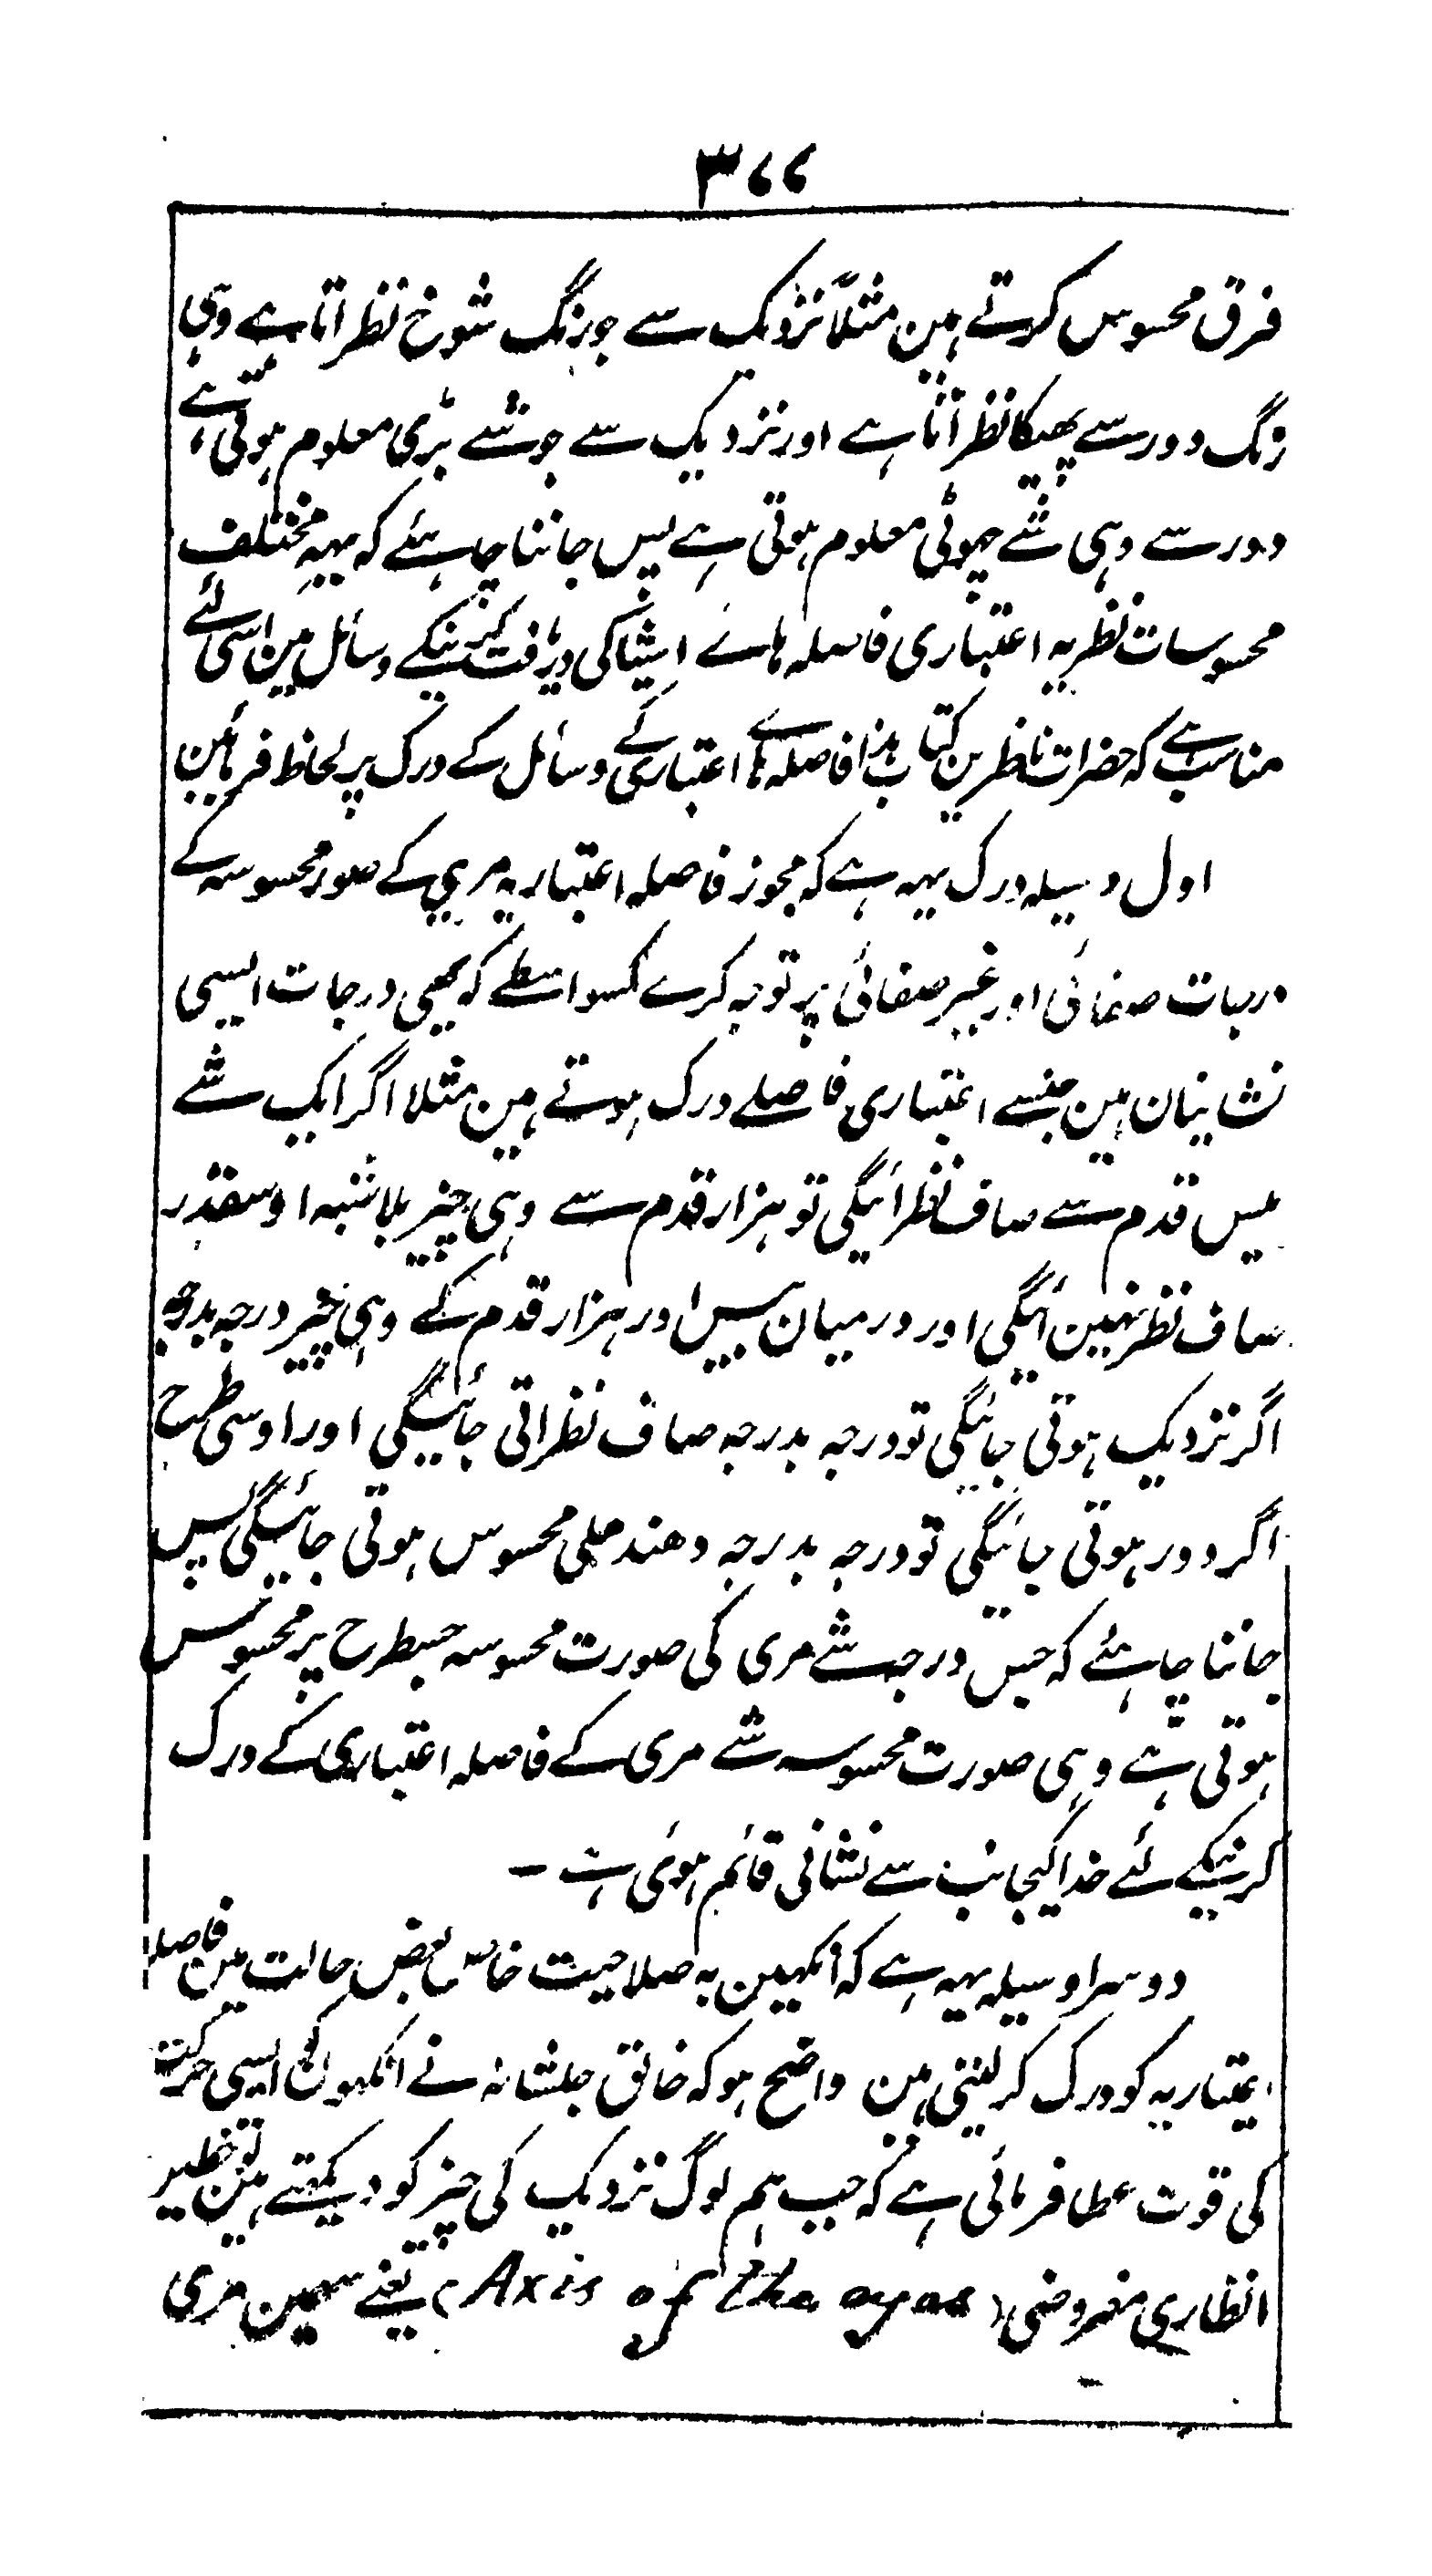 ۳۷۷
فرق محسوس کرتے ہین مثلاً نزدیک سے جو رنگ شوخ نظر اتا ہے وہی
رنگ دور سے پھیکا نظر اتا ہے اور نزدیک سے جو شے بڑی معلوم ہوتی ہے
دور سے وہی شے چہوٹی معلوم ہوتی ہے پس جاننا چاہئے کہ یہہ مختلف
محسوسات نظریہ اعتباری فاصلہ ہاے اشیا کی دریافت کرنیکے وسائل ہین اسی لئے
مناسب ہے کہ حضرات ناظرین کتاب ہذا فاصلہ ہاے اعتباری کے وسائل کے درک پر لحاظ فرمائین
اول وسیلہ درک یہہ ہے کہ مجوز فاصلہ اعتباریہ مریی کے صور محسوسہ کے
درجات صفائی اور غیر صفائی پر توجہ کرے کسواسطے کہ یہی درجات ایسی
نشانیان ہین جنسے اعتباری فاصلے درک ہوتے ہین مثلا اگر ایک شے
بیس قدم سے صاف نظر ائیگی تو ہزار قدم سے وہی چیز بلا شبہ اوسقدر
صاف نظر نہین ائیگی اور درمیان بیس اور ہزار قدم کے وہی چیز درجہ بدرجہ
اگر نزدیک ہوتی جائیگی تو درجہ بدرجہ صاف نظر اتی جائیگی اور اوسی طرح
اگر دور ہوتی جائیگی تو درجہ بدرجہ دھندہلی محسوس ہوتی جائیگی پس
جاننا چاہئے کہ جس درجہ شے مری کی صورت محسوسہ جسطرح پر محسوس
ہوتی ہے وہی صورت محسوسہ شے مری کے فاصلہ اعتباری کے درک
کرنیکے لئے خدا کیجانب سے نشانی قائم ہوئی ہے –
دوسرا وسیلہ یہہ ہے کہ انکہین بہ صلاحیت خاص بعض حالت مین فاصلہ
اعتباریہ کو درک کر لیتی ہین واضح ہو کہ خالق جلشانہ نے انکہون کو ایسی حرکت
کی قوت عطا فرمائی ہے کہ جب ہم لوگ نزدیک کی چیز کو دیکہتے ہین تو خطیر
انظاری مفروضی (Axis of the eyes) یعنے سہمین مری